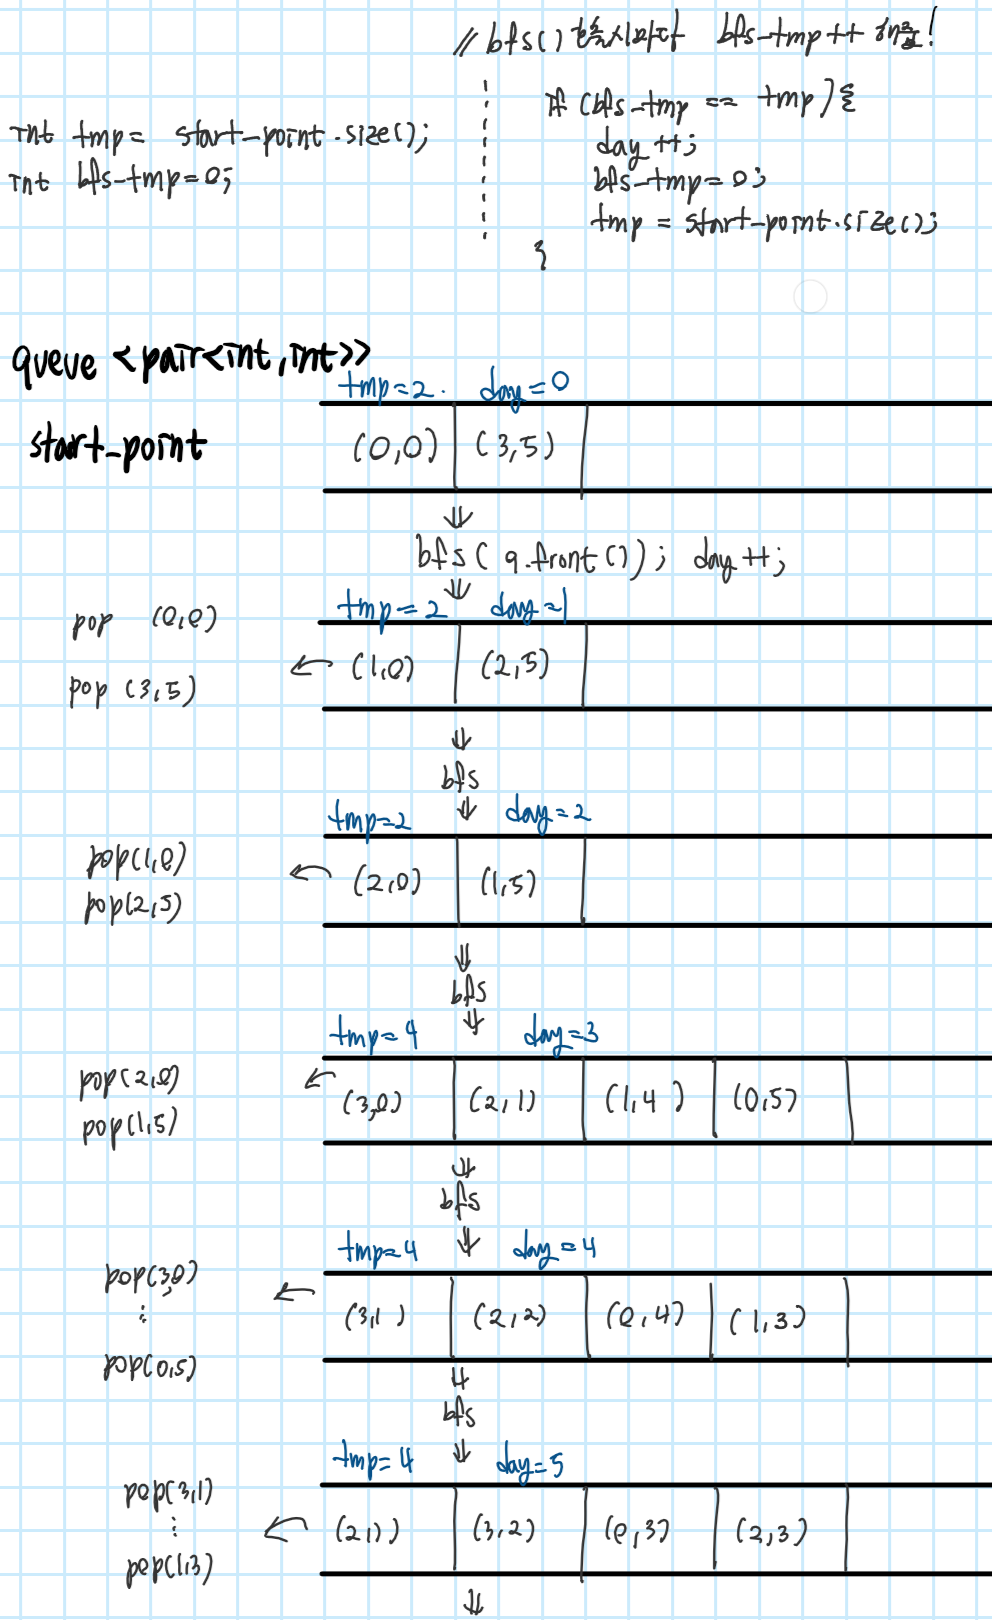 // bfs() 함수 실행시마다 bfs_tmp++ 해줌!
int tmp = start_point.size();
int bfs_tmp=0;
if (bfs_tmp == tmp){
day++;
bfs_tmp=0;
tmp = start_point.size();
}
queue <pair<int,int>>
start_point
tmp=2. day=0
(0,0) (3,5)
bfs( q.front()); day++;
tmp=2 day=1
pop (0,0)
pop (3,5)
(1,0) (2,5)
bfs
tmp=2 day=2
pop(1,0)
pop(2,5)
(2,0) (1,5)
bfs
tmp=4 day=3
pop(2,0)
pop(1,5)
(3,0) (2,1) (1,4) (0,5)
bfs
tmp=4 day=4
pop(3,0)
⋮
pop(0,5)
(3,1) (2,2) (0,4) (1,3)
bfs
tmp=4 day=5
pop(3,1)
⋮
pop(1,3)
(2,1) (3,2) (0,3) (2,3)